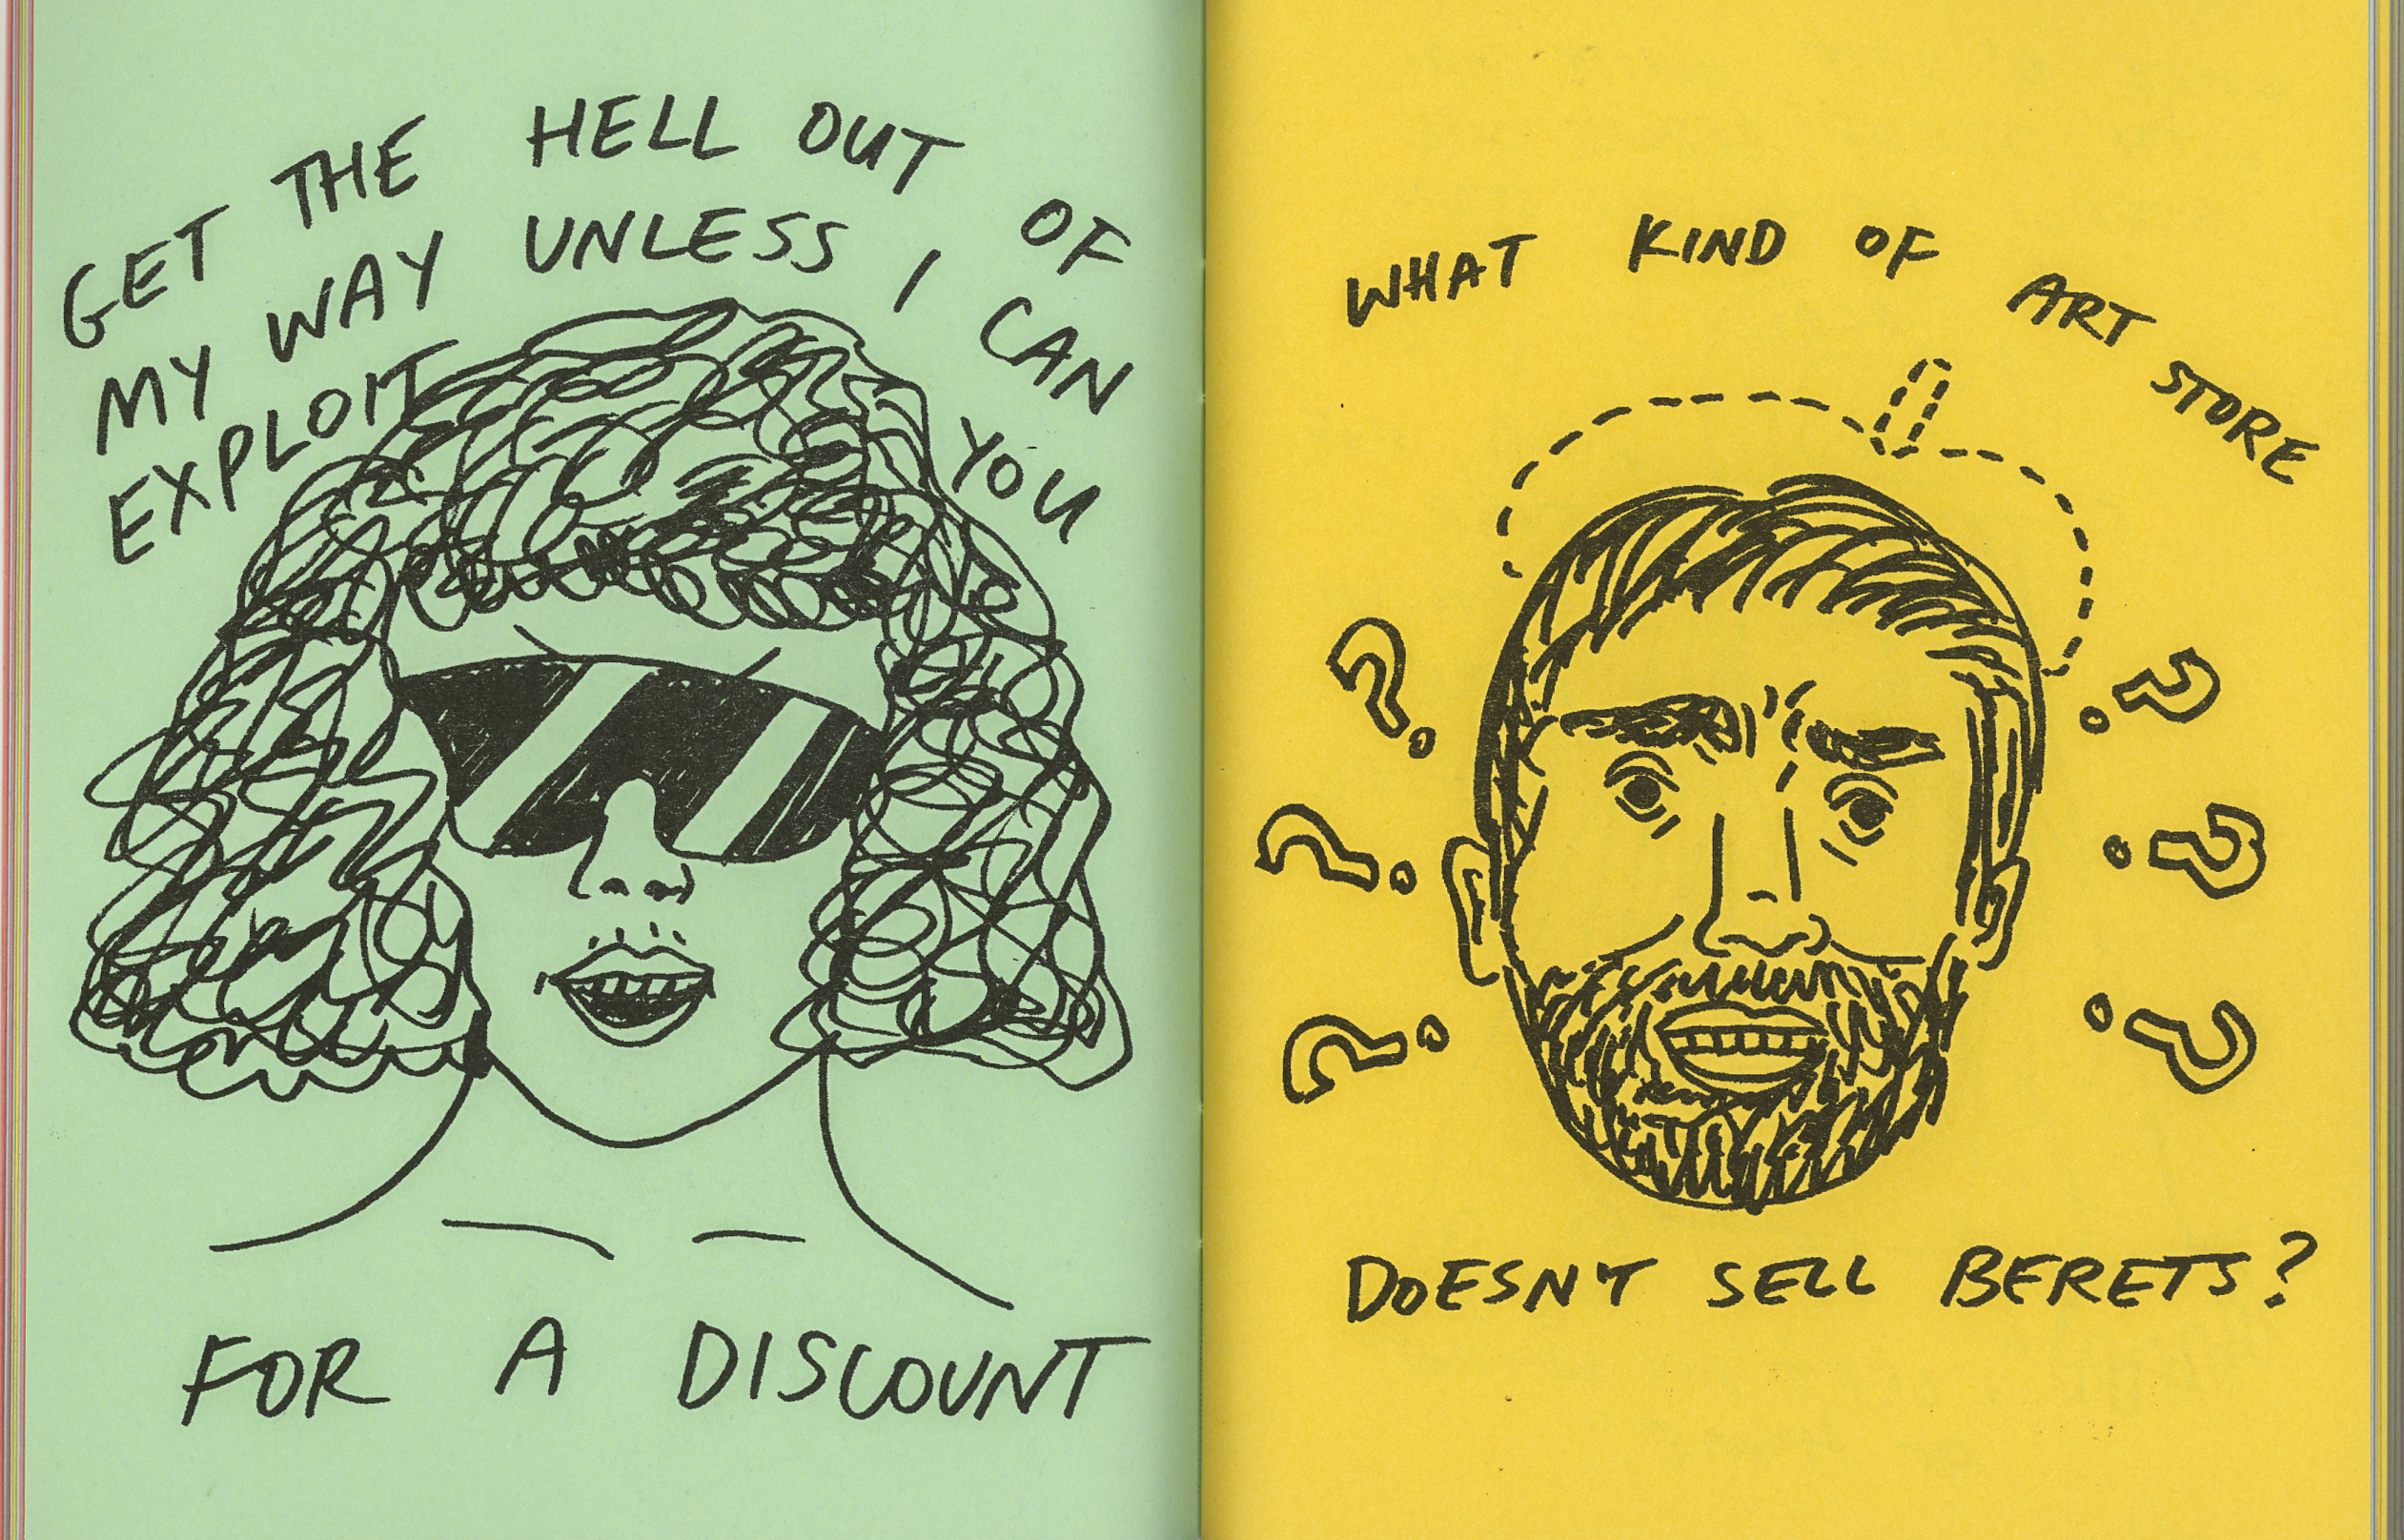 GET THE HELL OUT OF
MY WAY UNLESS I CAN
EXPLOIT YOU
FOR A DISCOUNT
WHAT KIND OF ART STORE
DOESN'T SELL BERETS?